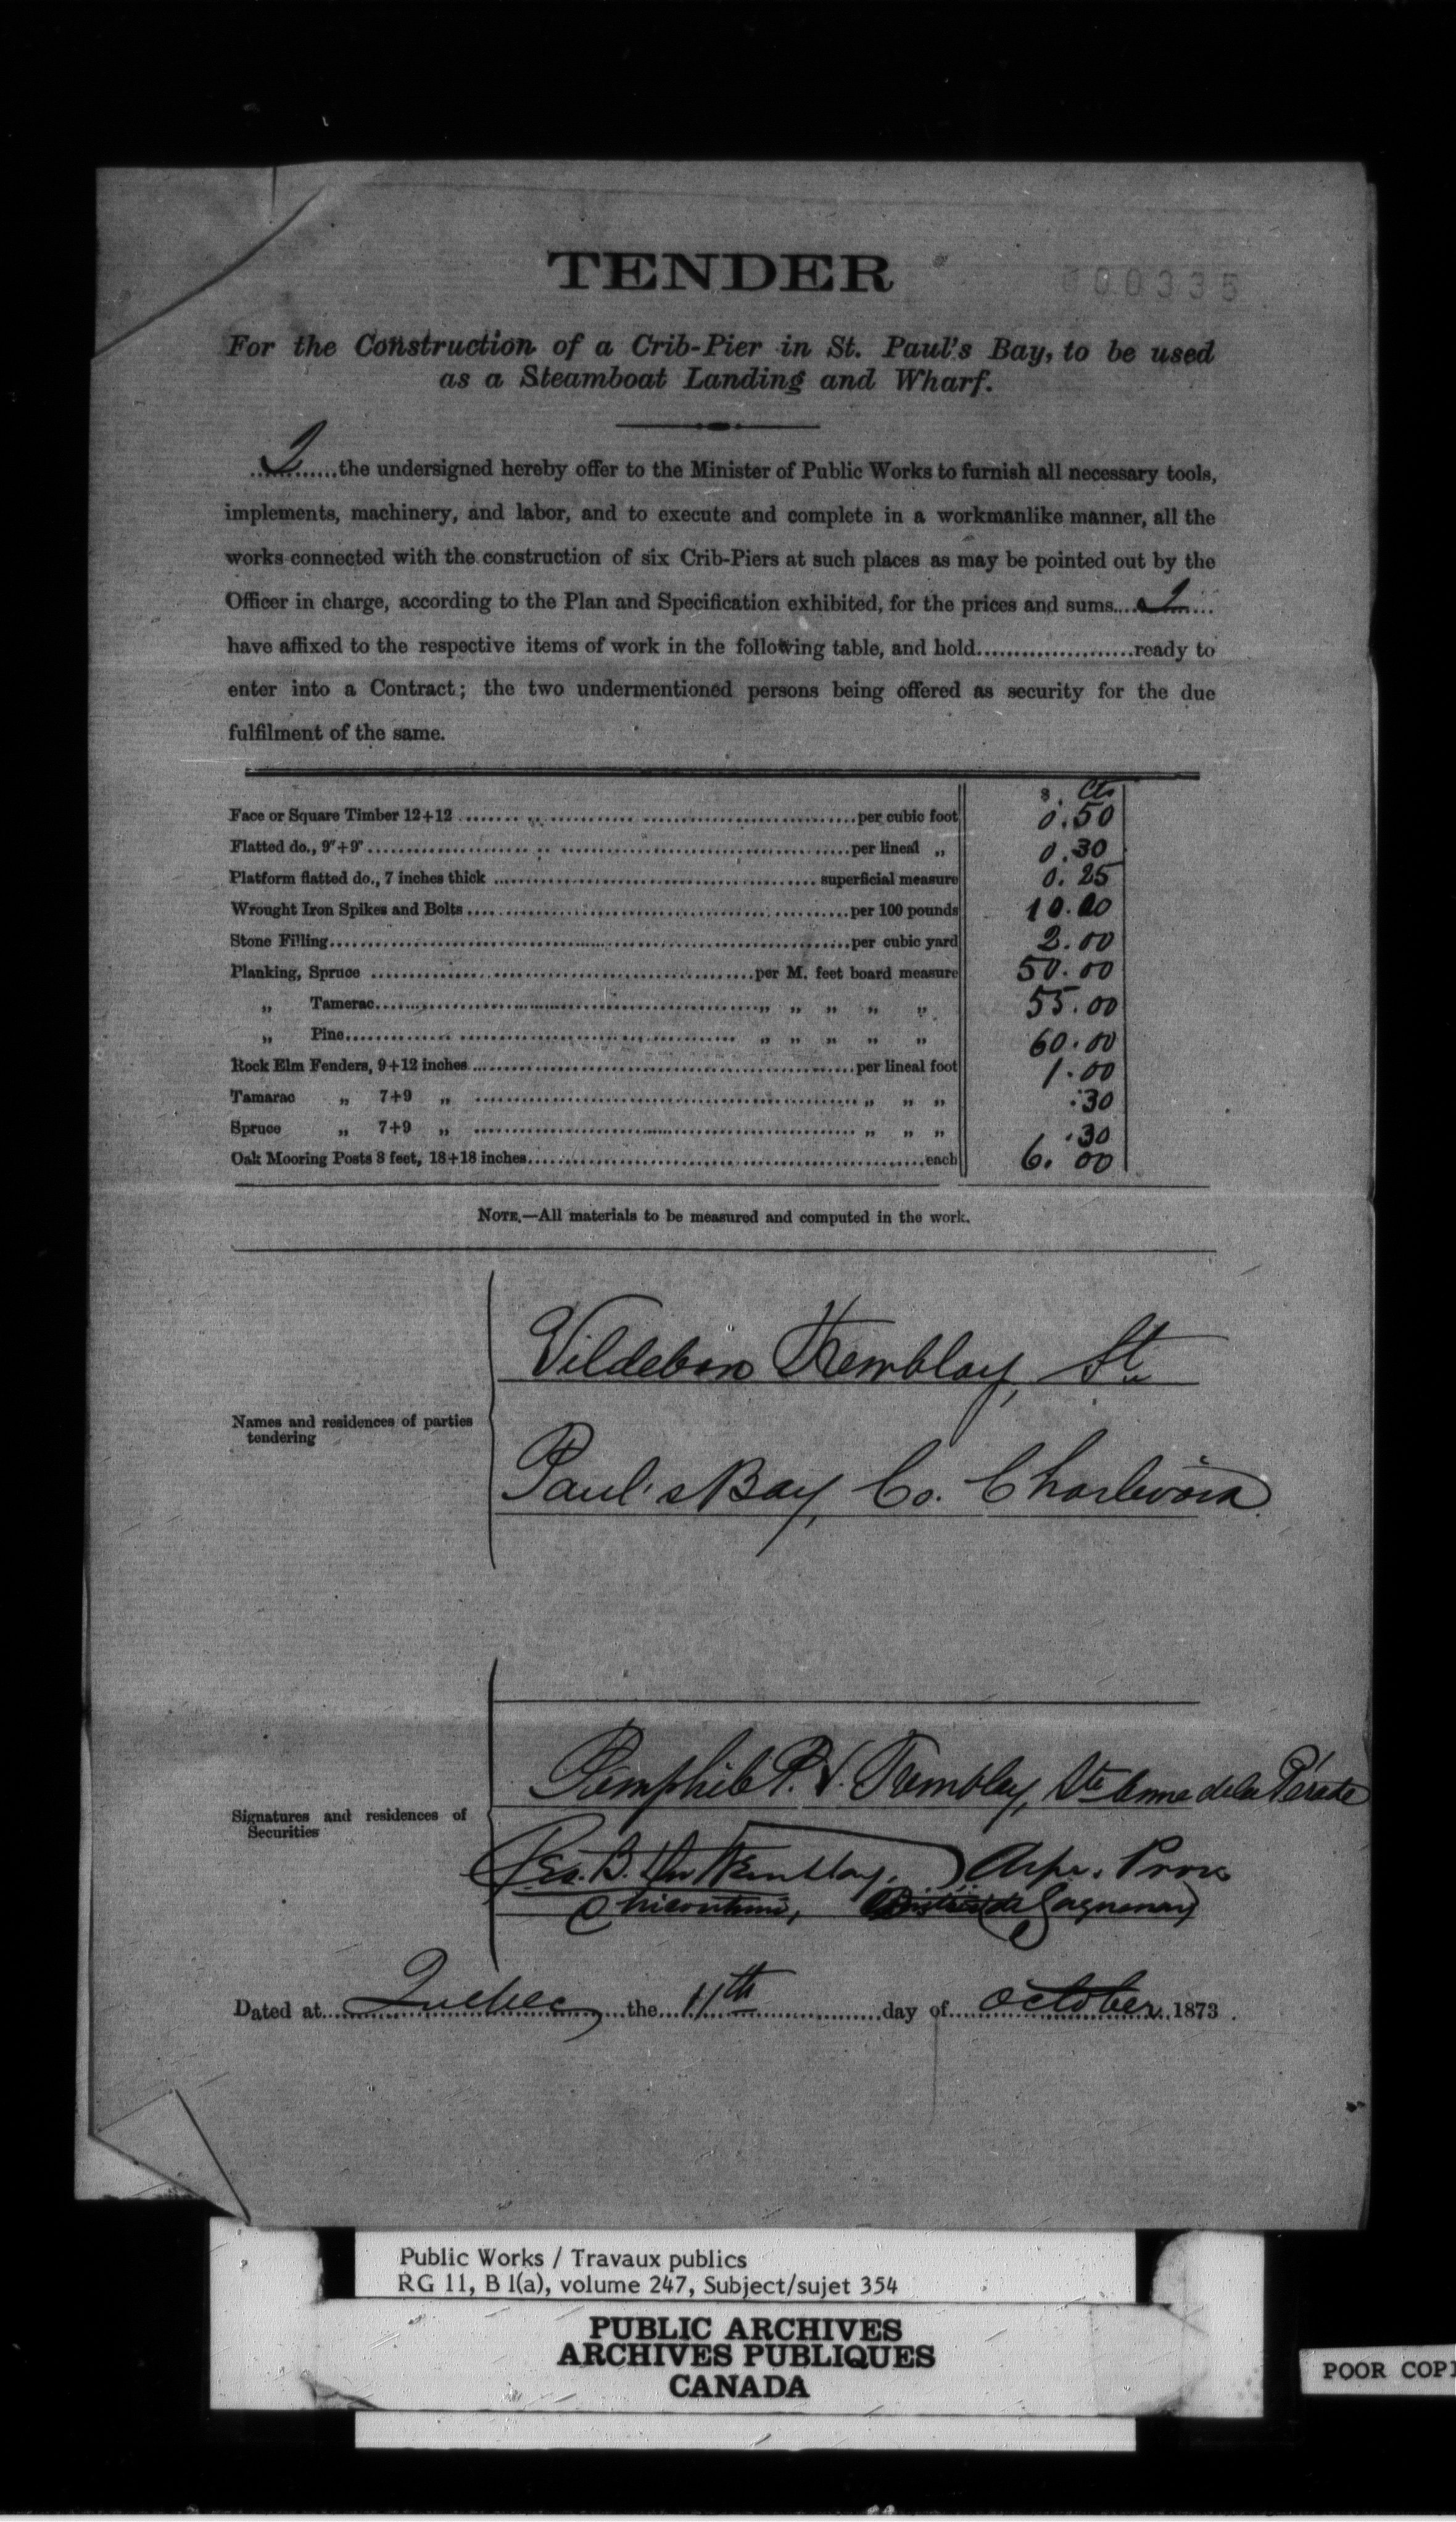 TENDER
000335
For the Construction of a Crib-Pier in St. Paul's Bay, to be used
as a Steamboat Landing and Wharf.
I the undersigned hereby offer to the Minister of Public Works to furnish all necessary tools,
implements, machinery, and labor, and to execute and complete in a workmanlike manner, all the
works connected with the construction of six Crib-Piers at such places as may be pointed out by the
Officer in charge, according to the Plan and Specification exhibited, for the prices and sums....I....
have affixed to the respective items of work in the following table, and hold....................ready to
enter into a Contract; the two undermentioned persons being offered as security for the due
fulfilment of the same.
$. Cts
Face or Square Timber 12+12 ........ per cubic foot 0.50
Flatted do., 9"+9" ........ per lineal „ 0.30
Platform flatted do., 7 inches thick ........ superficial measure 0.25
Wrought Iron Spikes and Bolts ........ per 100 pounds 10.00
Stone Filling ........ per cubic yard 2.00
Planking, Spruce ........ per M. feet board measure 50.00
„ Tamerac ........ „ „ „ „ „ 55.00
„ Pine ........ „ „ „ „ „ 60.00
Rock Elm Fenders, 9+12 inches ........ per lineal foot 1.00
Tamarac „ 7+9 „ ........ „ „ „ .30
Spruce „ 7+9 „ ........ „ „ „ .30
Oak Mooring Posts 8 feet, 18+18 inches ........ each 6.00
NOTE.—All materials to be measured and computed in the work.
Vildebon Tremblay, St.
Names and residences of parties
tendering
Paul's Bay, Co. Charlevoix
Pamphile P. V. Tremblay, Ste Anne de la Pérade
Signatures and residences of
Securities
Geo. B. Du Tremblay, Arp. Prov
Chicoutimi, District de Saguenay
Dated at Quebec, the 11th day of October 1873.
Public Works / Travaux publics
RG 11, B 1(a), volume 247, Subject/sujet 354
PUBLIC ARCHIVES
ARCHIVES PUBLIQUES
CANADA
POOR COPI